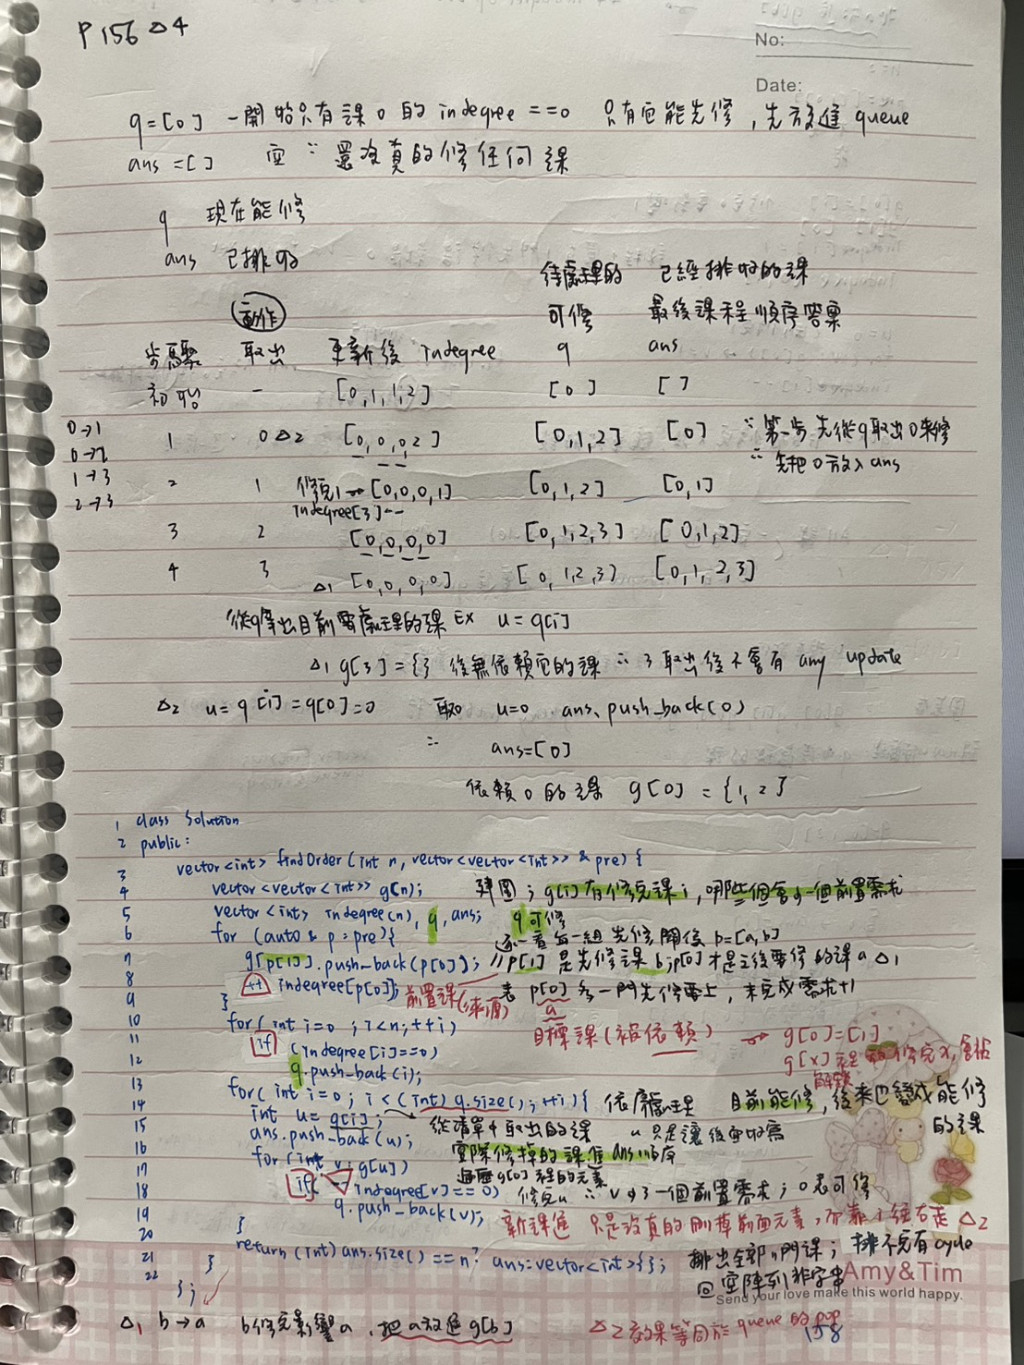 P 156 △4
No:
Date:
q=[0] 一開始只有課 0 的 indegree ==0 只有它能先修，先放進 queue
ans =[] 空 ∵ 還沒真的修任何課
q 現在能修
ans 已排好
待處理的 已經排好的課
動作 可修 最後課程順序答案
步驟 取出 更新後 indegree q ans
初始 - [0,1,1,2] [0] []
0→1
1 0 △2 [0,0,0,2] [0,1,2] [0] ∵ 第一步先從q取出0來修
0→2
∴ 先把0放入ans
1→3
2 1 修完1→[0,0,0,1] [0,1,2] [0,1]
2→3
indegree[3]--
3 2 [0,0,0,0] [0,1,2,3] [0,1,2]
4 3 △1 [0,0,0,0] [0,1,2,3) [0,1,2,3]
從q拿出目前要處理的課 EX u = q[i]
△1 g[3] = {} 後無依賴它的課 ∴ 3 取出後不會有 any update
△2 u = q[i] = q[0] = 0 取0 u=0 ans.push_back(0)
∴ ans=[0]
依賴 0 的課 g[0] = {1,2}
1 class Solution
2 public:
3 vector<int> findOrder(int n, vector<vector<int>> & pre) {
4 vector<vector<int>> g(n); 建圖；g[i]有修完課i，哪些個會少一個前置需求
5 vector <int> indegree(n), q, ans; q可修
6 for (auto & p : pre){ 逐一看每一組先修關係 p=[a,b]
7 g[p[1]].push_back(p[0]); //p[1] 是先修課 b;p[0]才是之後要修的課 a △1
8 ++ indegree[p[0]]; 前置課(來源) 表 p[0] 多一門先修要上，未完成需求+1
9 } a
10 for(int i=0 ; i<n;++i) 目標課(被依賴) → g[0]=[1]
11 if (indegree[i]==0)
12 q.push_back(i);
13 for( int i=0; i < (int) q.size(); ++i) { 依處理 目前能修，後來也變成能修的課
14 int u = q[i]; 從清單中取出的課
15 ans.push_back(u); 實際修掉的課進 ans
16 for (int v: g[u]) 遍歷 g[0] 裡的元素
17 if(-- indegree[v] == 0) 修完u ∴ v少了一個前置需求；0表可修
18 q.push_back(v); 新課進 只是沒真的刪掉前面元素，而靠 i 往右走 △2
19 }
20 return (int) ans.size() == n? ans:vector<int>{}; 排出全部n門課；排不完有cycle
21 } 回空陣列非字串
22 };
Amy&Tim
Send your love make this world happy.
△1 b→a b修完影響a，把a放進g[b] △2 效果等同於 queue 的 pop
158